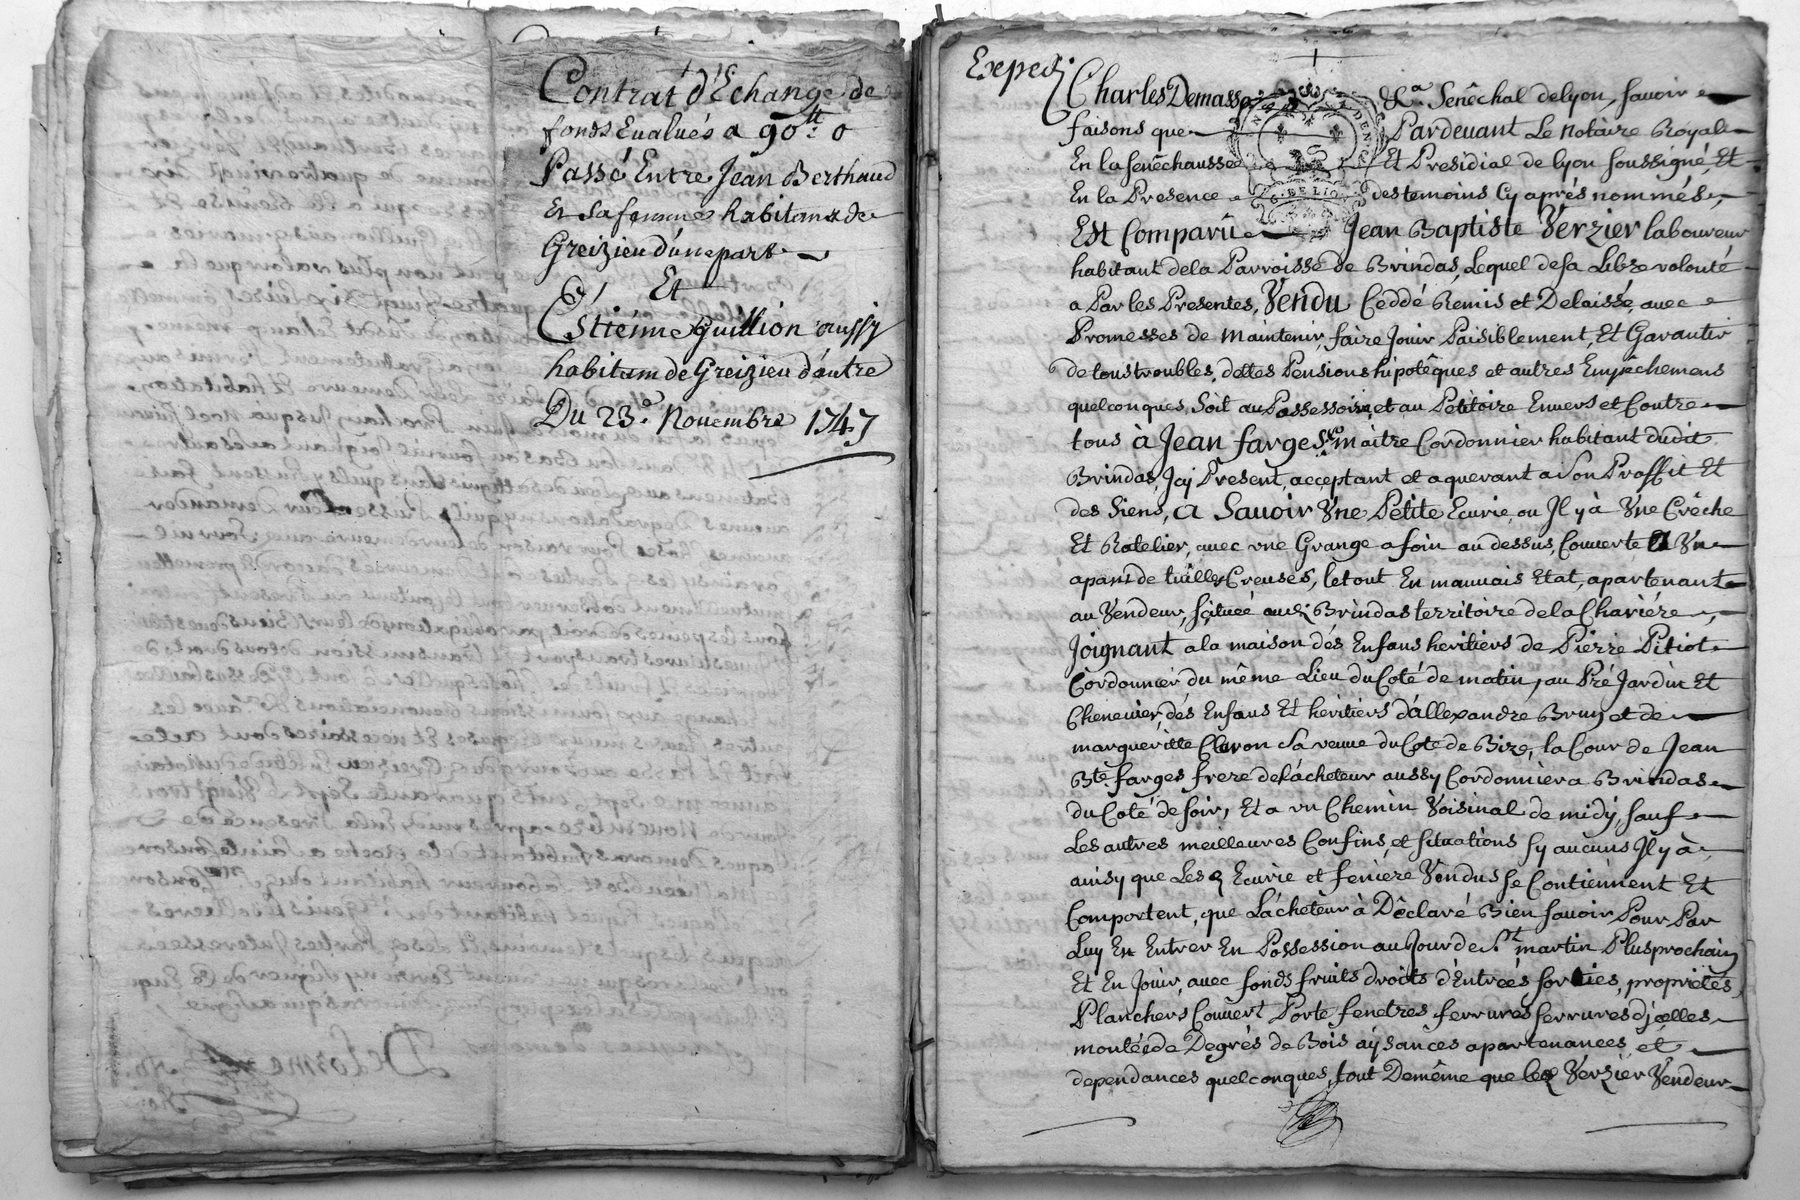 Contrat d'Echange de
fonds Evalués a 90ᵗᵗ: 0
Passé Entre Jean Berthaud
Et sa femme habitans de
Greizieu d'une part
Et
Estienne Guillion aussy
habitant de Greizieu d'autre
Du 23ᵉ. Novembre 1747
Expedi
Charles Demasso &ca. Senêchal de lyon, savoir
faisons que Pardevant Le Notaire Royal
En la senêchaussee Et Presidial de lyon soussigné, Et
En la Presence des temoins Cy aprés nommés,
Est Comparû Jean Baptiste Verzier laboureur
habitant de la Parroisse de Brindas, Lequel de sa Libre volonté
a Par les Presentes, Vendu Ceddé Remis et Delaissé, avec
Promesses de maintenir, faire Jouir Paisiblement, Et Garantir
de tous troubles, dettes Pensions hipotêques et autres Empêchemens
quelconques, Soit au Possessoire, et au Petitoire Envers et Contre
tous à Jean farges maitre Cordonnier habitant dudit
Brindas, Icy Présent, acceptant et aquerant a Son Proffit Et
des Siens, a Savoir Vne Petite Ecurie, ou Il y à Vne Crêche
Et Ratelier, avec vne Grange a foin au dessus, Couverte a Vn
apant de tuilles Creuses, le tout En mauvais Etat, apartenant
au Vendeur, scituée audi Brindas territoire de la Chariére,
Joignant a la maison dés Enfans heritiers de Pierre Pitiot
Cordonnier du même Lieu du Coté de matin, au Pré Jardin Et
Chenevier, dés Enfans Et héritiers d'allexandre Brun et de
marguèritte Claron Sa veuve du Cote de Bize, la Cour de Jean
Bte. farges frere de l'ácheteur aussy Cordonnier a Brindas
du Coté de soir, Et a vn Chemin Voisinal de midy, sauf
Les autres meilleures Confins, et situâtions sy aucuns Il y à,
ainsy que Les Ecurie et feniere Vendus se Contiennent Et
Comportent, que L'ácheteur à Dêclaré Bien savoir Pour Par
Luy En Entrer En Possession au Jour de St. martin Plus prochain
Et En Jouir, avec fonds fruits droits d'Entrées sorties, proprietés,
Planchers Couvert Porte fenetres ferrures serrures d'jcelles
montée de Degrés de Bois aysânces apartenances et
dependances quelconques, tout De même que led Verzier Vendeur